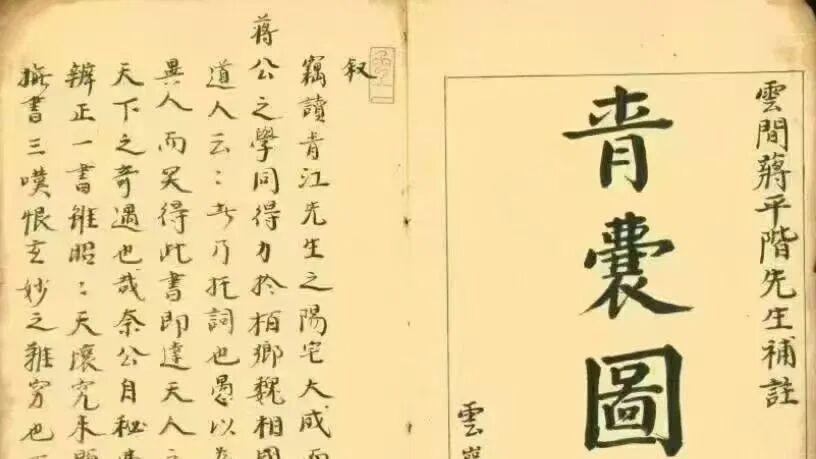 雲間蔣平階先生補註
青囊圖
雲
叙
竊讀青江先生之陽宅大成而
蔣公之學同得力於栢鄉魏相國
道人云〻者乃托詞也愚以
異人而得此書即達天人之
天下之奇遇也哉奈公自秘
辨正一書雖昭〻天壤究未
撫書三嘆恨玄妙之難窮也